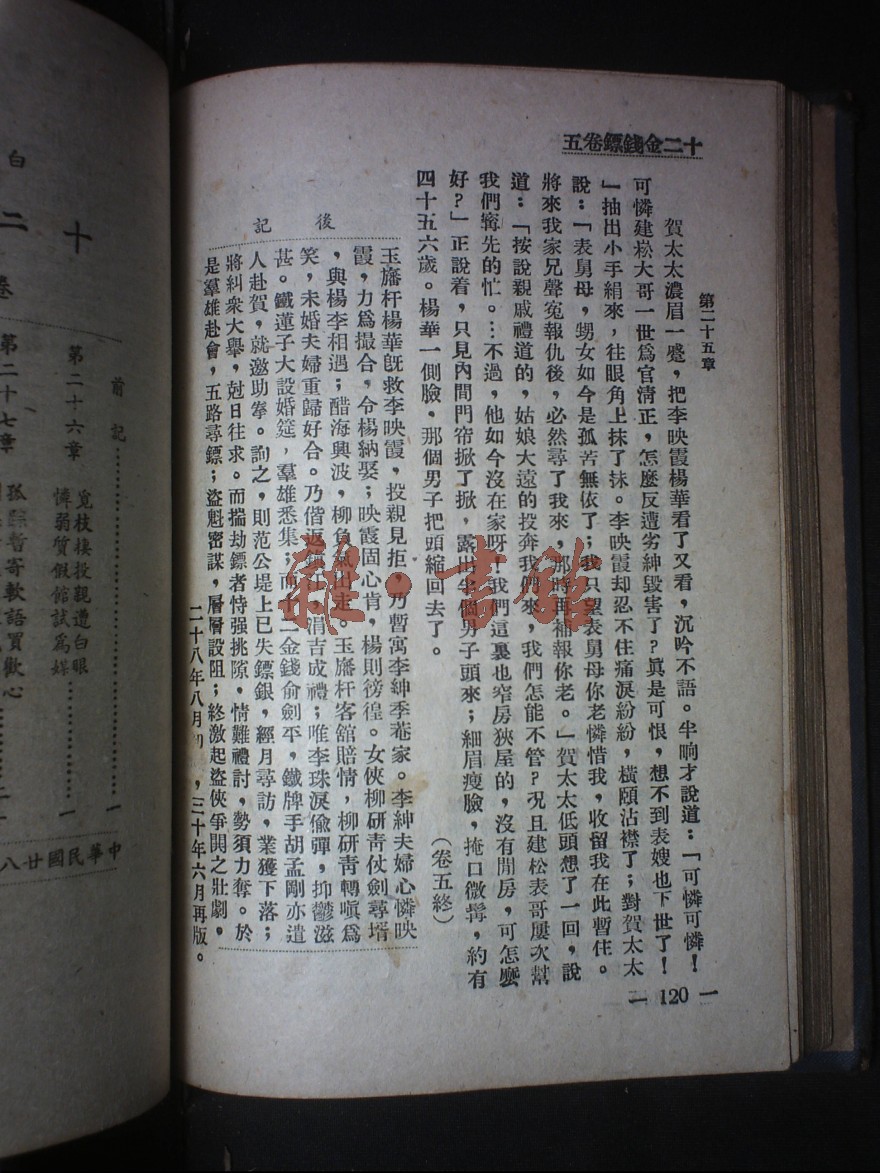 十二金錢鏢卷五
第二十五章
賀太太濃眉一蹙，把李映霞楊華看了又看，沉吟不語。半晌才說道：「可憐可憐！
可憐建崧大哥一世為官清正，怎麼反遭劣紳毀害了？真是可恨，想不到表嫂也下世了！
」抽出小手絹來，往眼角上抹了抹。李映霞却忍不住痛淚紛紛，橫頤沾襟了；對賀太太
說：「表舅母，甥女如今是孤苦無依了；我只望表舅母你老憐惜我，收留我在此暫住。
將來我家兄聲寃報仇後，必然尋了我來，那時再補報你老。」賀太太低頭想了一回，說
道：「按說親戚禮道的，姑娘大遠的投奔我們來，我們怎能不管？况且建松表哥屢次幫
我們寗先的忙。…不過，他如今沒在家呀！我們這裏也窄房狹屋的，沒有閒房，可怎麼
好？」正說着，只見內間門帘掀了掀，露出一個男子頭來；細眉瘦臉，掩口微髯，約有
四十五六歲。楊華一側臉，那個男子把頭縮回去了。
（卷五終）
後記
玉旛杆楊華旣救李映霞，投親見拒，乃暫寓李紳季菴家。李紳夫婦心憐映
霞，力爲撮合，令楊納娶；映霞固心肯，楊則徬徨。女俠柳研青仗劍尋壻
，與楊李相遇；醋海興波，柳負氣出走。玉旛杆客舘賠情，柳研青轉嗔爲
笑，未婚夫婦重歸好合。乃偕返鎭江，涓吉成禮；唯李珠淚偸彈，抑鬱滋
甚。鐵蓮子大設婚筵，羣雄悉集；而十二金錢俞劍平，鐵牌手胡孟剛亦遣
人赴賀，就邀助拳。詢之，則范公堤上已失鏢銀，經月尋訪，業獲下落；
將糾衆大舉，尅日往求。而揣劫鏢者恃强挑隙，情難禮討，勢須力奪。於
是羣雄赴會，五路尋鏢；盜魁密謀，層層設阻；終激起盜俠爭鬨之壯劇，
二十八年八月初，三十年六月再版。
一 120 一
白
十二
卷
前記……………一
第二十六章 覓枝棲投親遭白眼
憐弱質假館試爲媒……一
第二十七章 孤踪暫寄軟語買歡心
中華民國廿八
雜·書館